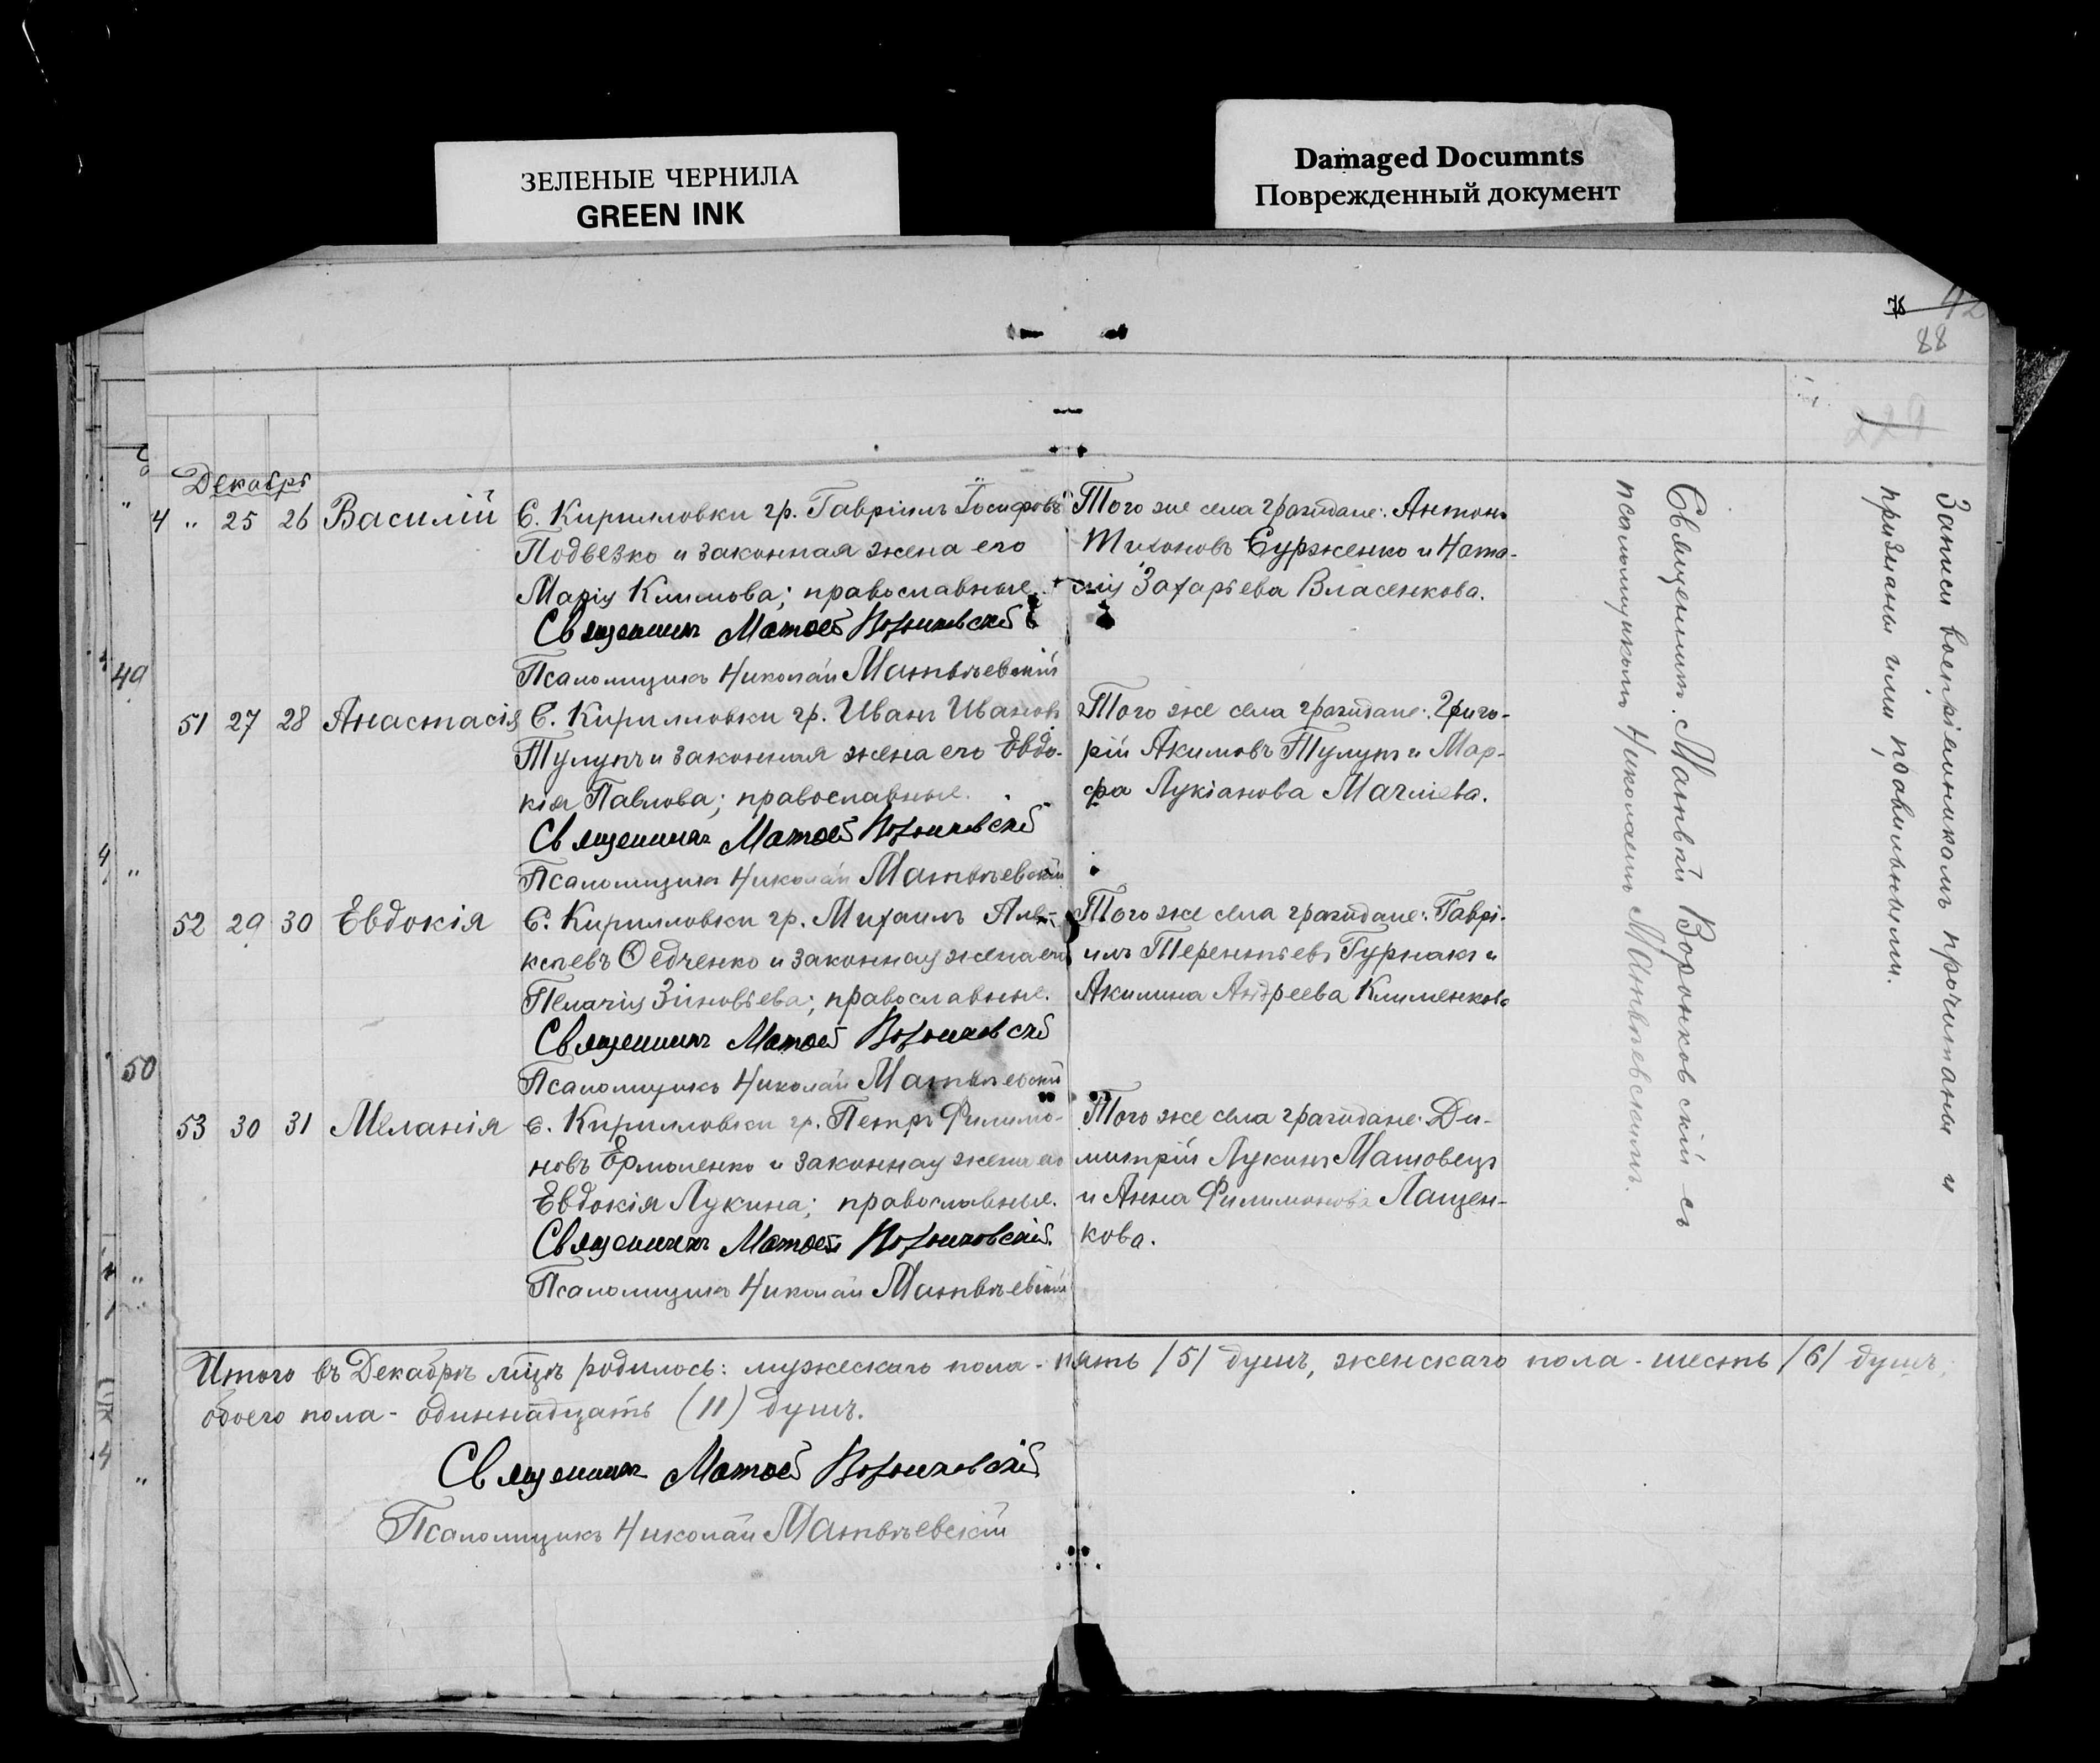 ЗЕЛЕНЫЕ ЧЕРНИЛА
GREEN INK
Damaged Documnts
Поврежденный документ
42
88
Декабрь
4 " 25 26 Василій
С. Кирилловки гр. Гавріилъ Іосифовъ
Подвезко и законная жена его
Марія Климова; православные.
Священникъ Матвей Воронковскій
Псаломщикъ Николай Матвѣевскій
Того же села граждане: Антонъ
Тихоновъ Сурженко и Ната-
лія Захарьева Власенкова.
49
51 27 28 Анастасія
С. Кирилловки гр. Иванъ Ивановъ
Тулупъ и законная жена его Евдо-
кія Павлова; православные.
Священникъ Матвей Воронковскій
Псаломщикъ Николай Матвѣевскій
Того же села граждане: Григо-
рій Акимовъ Тулупъ и Мар-
фа Лукіанова Магліева.
52 29 30 Евдокія
С. Кирилловки гр. Михаилъ Алек-
кѣевъ Ѳедченко и законная жена его
Пелагія Зіновьева; православные.
Священникъ Матвей Воронковскій
Псаломщикъ Николай Матвѣевскій
Того же села граждане: Гаврі-
илъ Терентьевъ Гурнакъ и
Акилина Андреева Клименкова
50
53 30 31 Меланія
С. Кирилловки гр. Петръ Филимо-
новъ Ермоленко и законная жена его
Евдокія Лукина; православные.
Священникъ Матвей Воронковскій
Псаломщикъ Николай Матвѣевскій
Того же села граждане: Ди-
митрій Лукинъ Машовецъ
и Анна Филимонова Лащен-
кова.
Священникъ Матвѣй Воронковскій съ
псаломщикомъ Николаемъ Матвѣевскимъ.
Записи воспріемникамъ прочитаны и
признаны ими правильными.
Итого въ Декабрѣ мцѣ родилось: мужескаго пола - пять /5/ душъ, женскаго пола - шесть /6/ душъ,
обоего пола - одиннадцать (11) душъ.
Священникъ Матвей Воронковскій
Псаломщикъ Николай Матвѣевскій